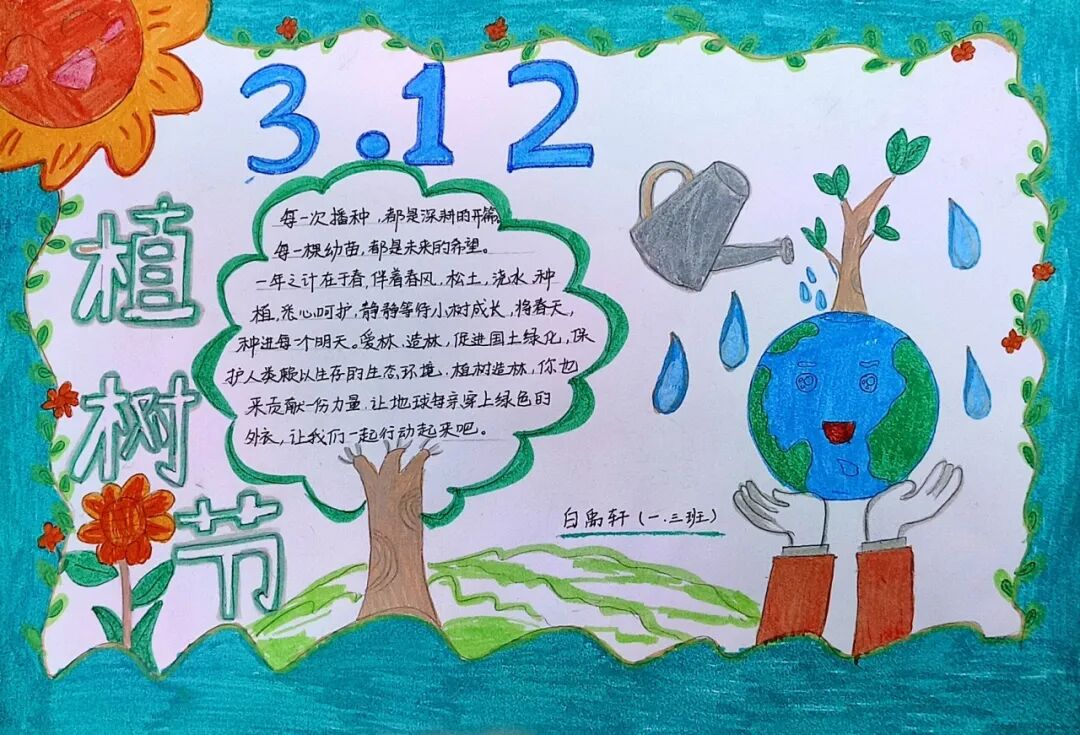 3.12
植树节
每一次播种，都是深耕的开篇。
每一棵幼苗，都是未来的希望。
一年之计在于春，伴着春风，松土，浇水，种
植，悉心呵护，静静等待小树成长，将春天，
种进每一个明天。爱林、造林，促进国土绿化，保
护人类赖以生存的生态环境，植树造林，你也
来贡献一份力量，让地球母亲穿上绿色的
外衣，让我们一起行动起来吧。
白禹轩（一.三班）